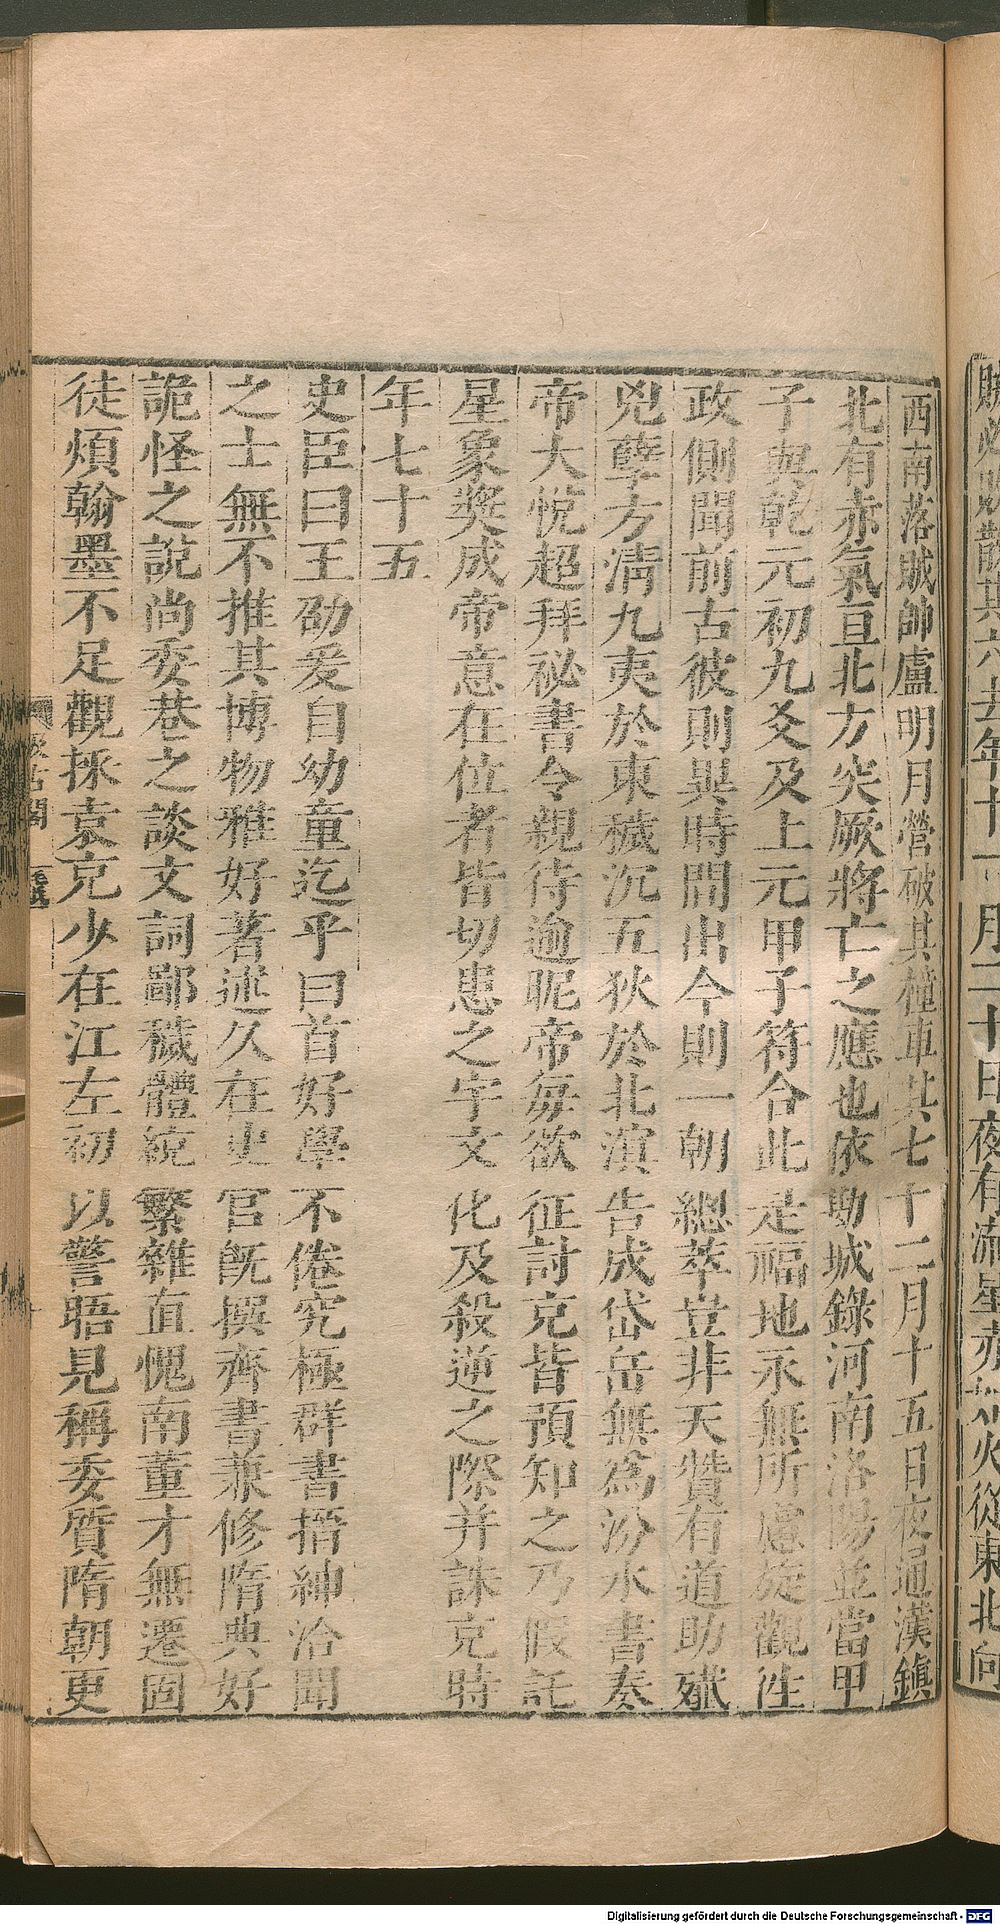 賊必敗散其六去年十一月二十日夜有流星赤如火從東北向
西南落賊帥盧明月營破其橦車其七十二月十五日夜通漢鎮
北有赤氣亘北方突厥將亡之應也依勘城錄河南洛陽並當甲
子與乾元初九爻及上元甲子符合此是福地永無所慮旋觀往
政側聞前古彼則異時間出今則一朝總萃豈非天贊有道助殲
兇孽方清九夷於東穢沉五狄於北溟告成岱岳無為汾水書奏
帝大悅超拜祕書令親待逾昵帝每欲征討克皆預知之乃假託
星象奬成帝意在位者皆切患之宇文化及殺逆之際并誅克時
年七十五
史臣曰王劭爰自幼童迄乎白首好學不倦究極群書搢紳洽聞
之士無不推其博物雅好著述久在史官既撰齊書兼修隋典好
詭怪之說尚委巷之談文詞鄙穢體統繁雜直愧南董才無遷固
徒煩翰墨不足觀採袁充少在江左初以警晤見稱委質隋朝更
汲古閣
毛氏
Digitalisierung gefördert durch die Deutsche Forschungsgemeinschaft - DFG